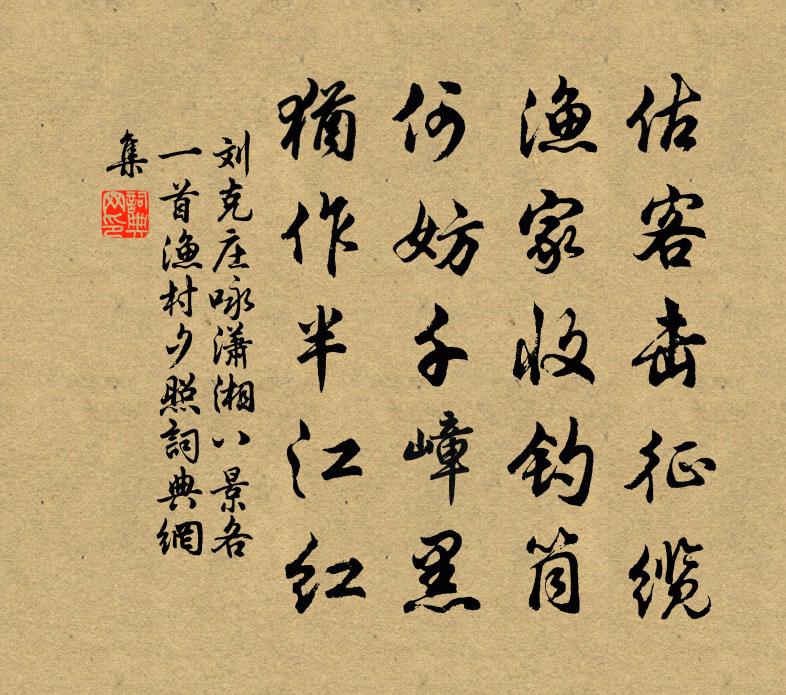 估客击征缆
渔家收钓筒
何妨千嶂黑
犹作半江红
刘克庄咏潇湘八景各
一首渔村夕照詞典網
集
詞典
网印